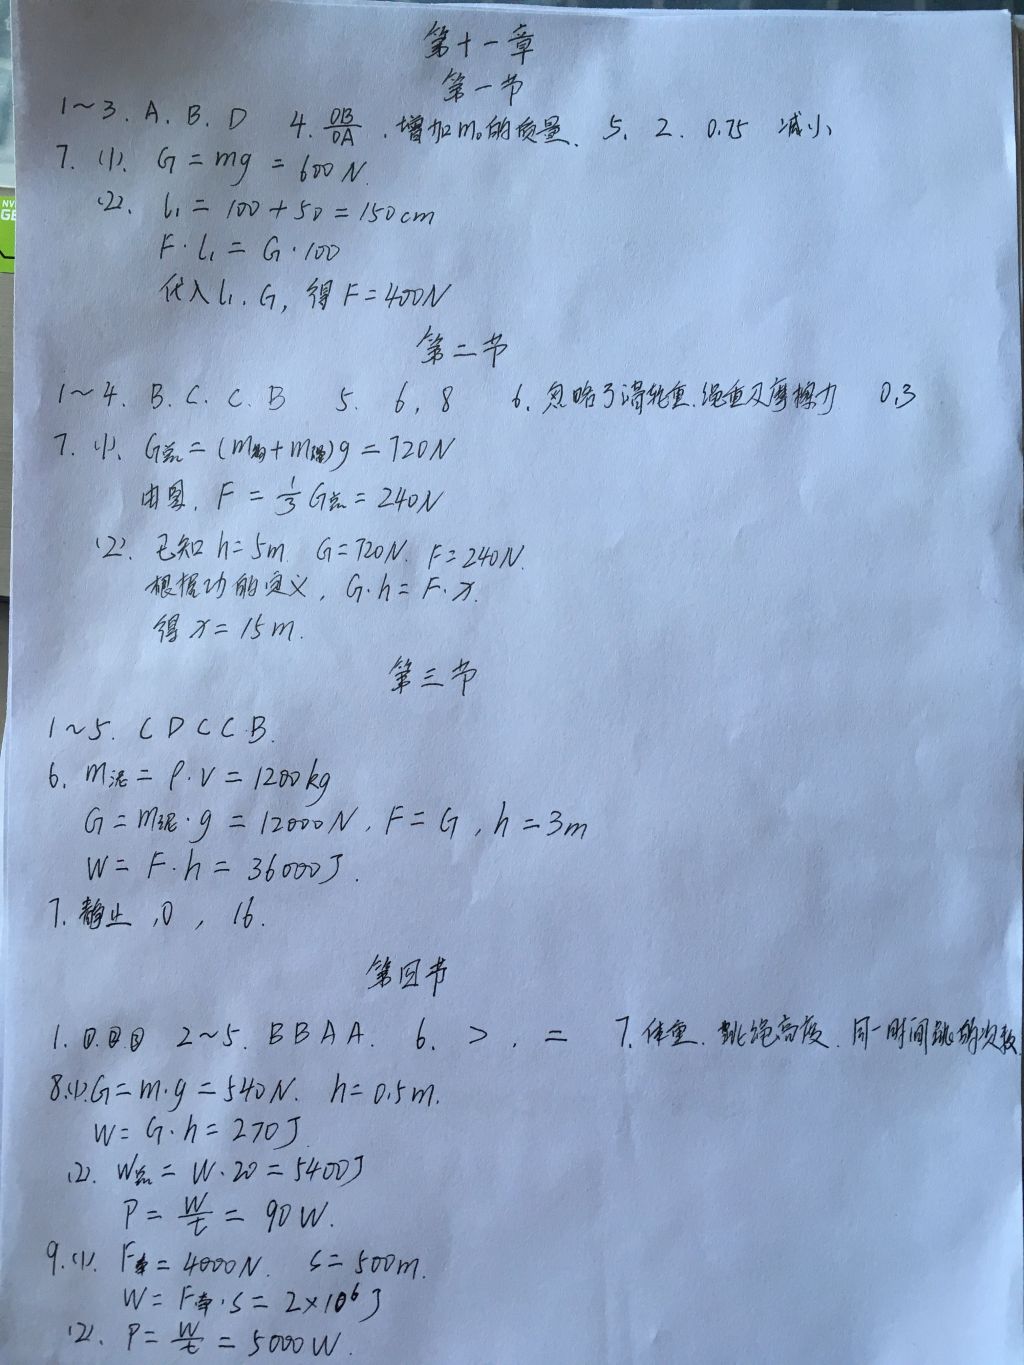 第十一章
第一节
1~3. A. B. D 4. OB/OA . 增加m₀的质量. 5. 2. 0.75 减小
7. (1). G = mg = 600N.
(2). l₁ = 100 + 50 = 150cm
F·l₁ = G·100
代入l₁. G, 得 F = 400N
第二节
1~4. B. C. C. B 5. 6, 8 6. 忽略了滑轮重.绳重及摩擦力 0.3
7. (1). G总 = (m桶+m泥)g = 720N
由图, F = 1/3 G总 = 240N
(2). 已知 h = 5m. G = 720N. F = 240N.
根据功的定义, G·h = F·x.
得 x = 15m.
第三节
1~5. C D C C B.
6. m泥 = ρ·V = 1200kg
G = m泥·g = 12000N, F = G, h = 3m
W = F·h = 36000J.
7. 静止, 0, 16.
第四节
1. ①.②.③ 2~5. B B A A. 6. >. = 7. 体重. 跳绳高度. 同一时间跳的次数
8.(1).G = m·g = 540N. h = 0.5m.
W = G·h = 270J
(2). W总 = W·20 = 5400J
P = W/t = 90W.
9.(1). F牵 = 4000N. S = 500m.
W = F牵·S = 2×10⁶J
(2). P = W/t = 5000W.
NV
GE